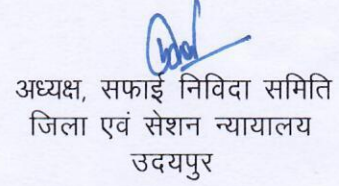 अध्यक्ष, सफाई निविदा समिति
जिला एवं सेशन न्यायालय
उदयपुर